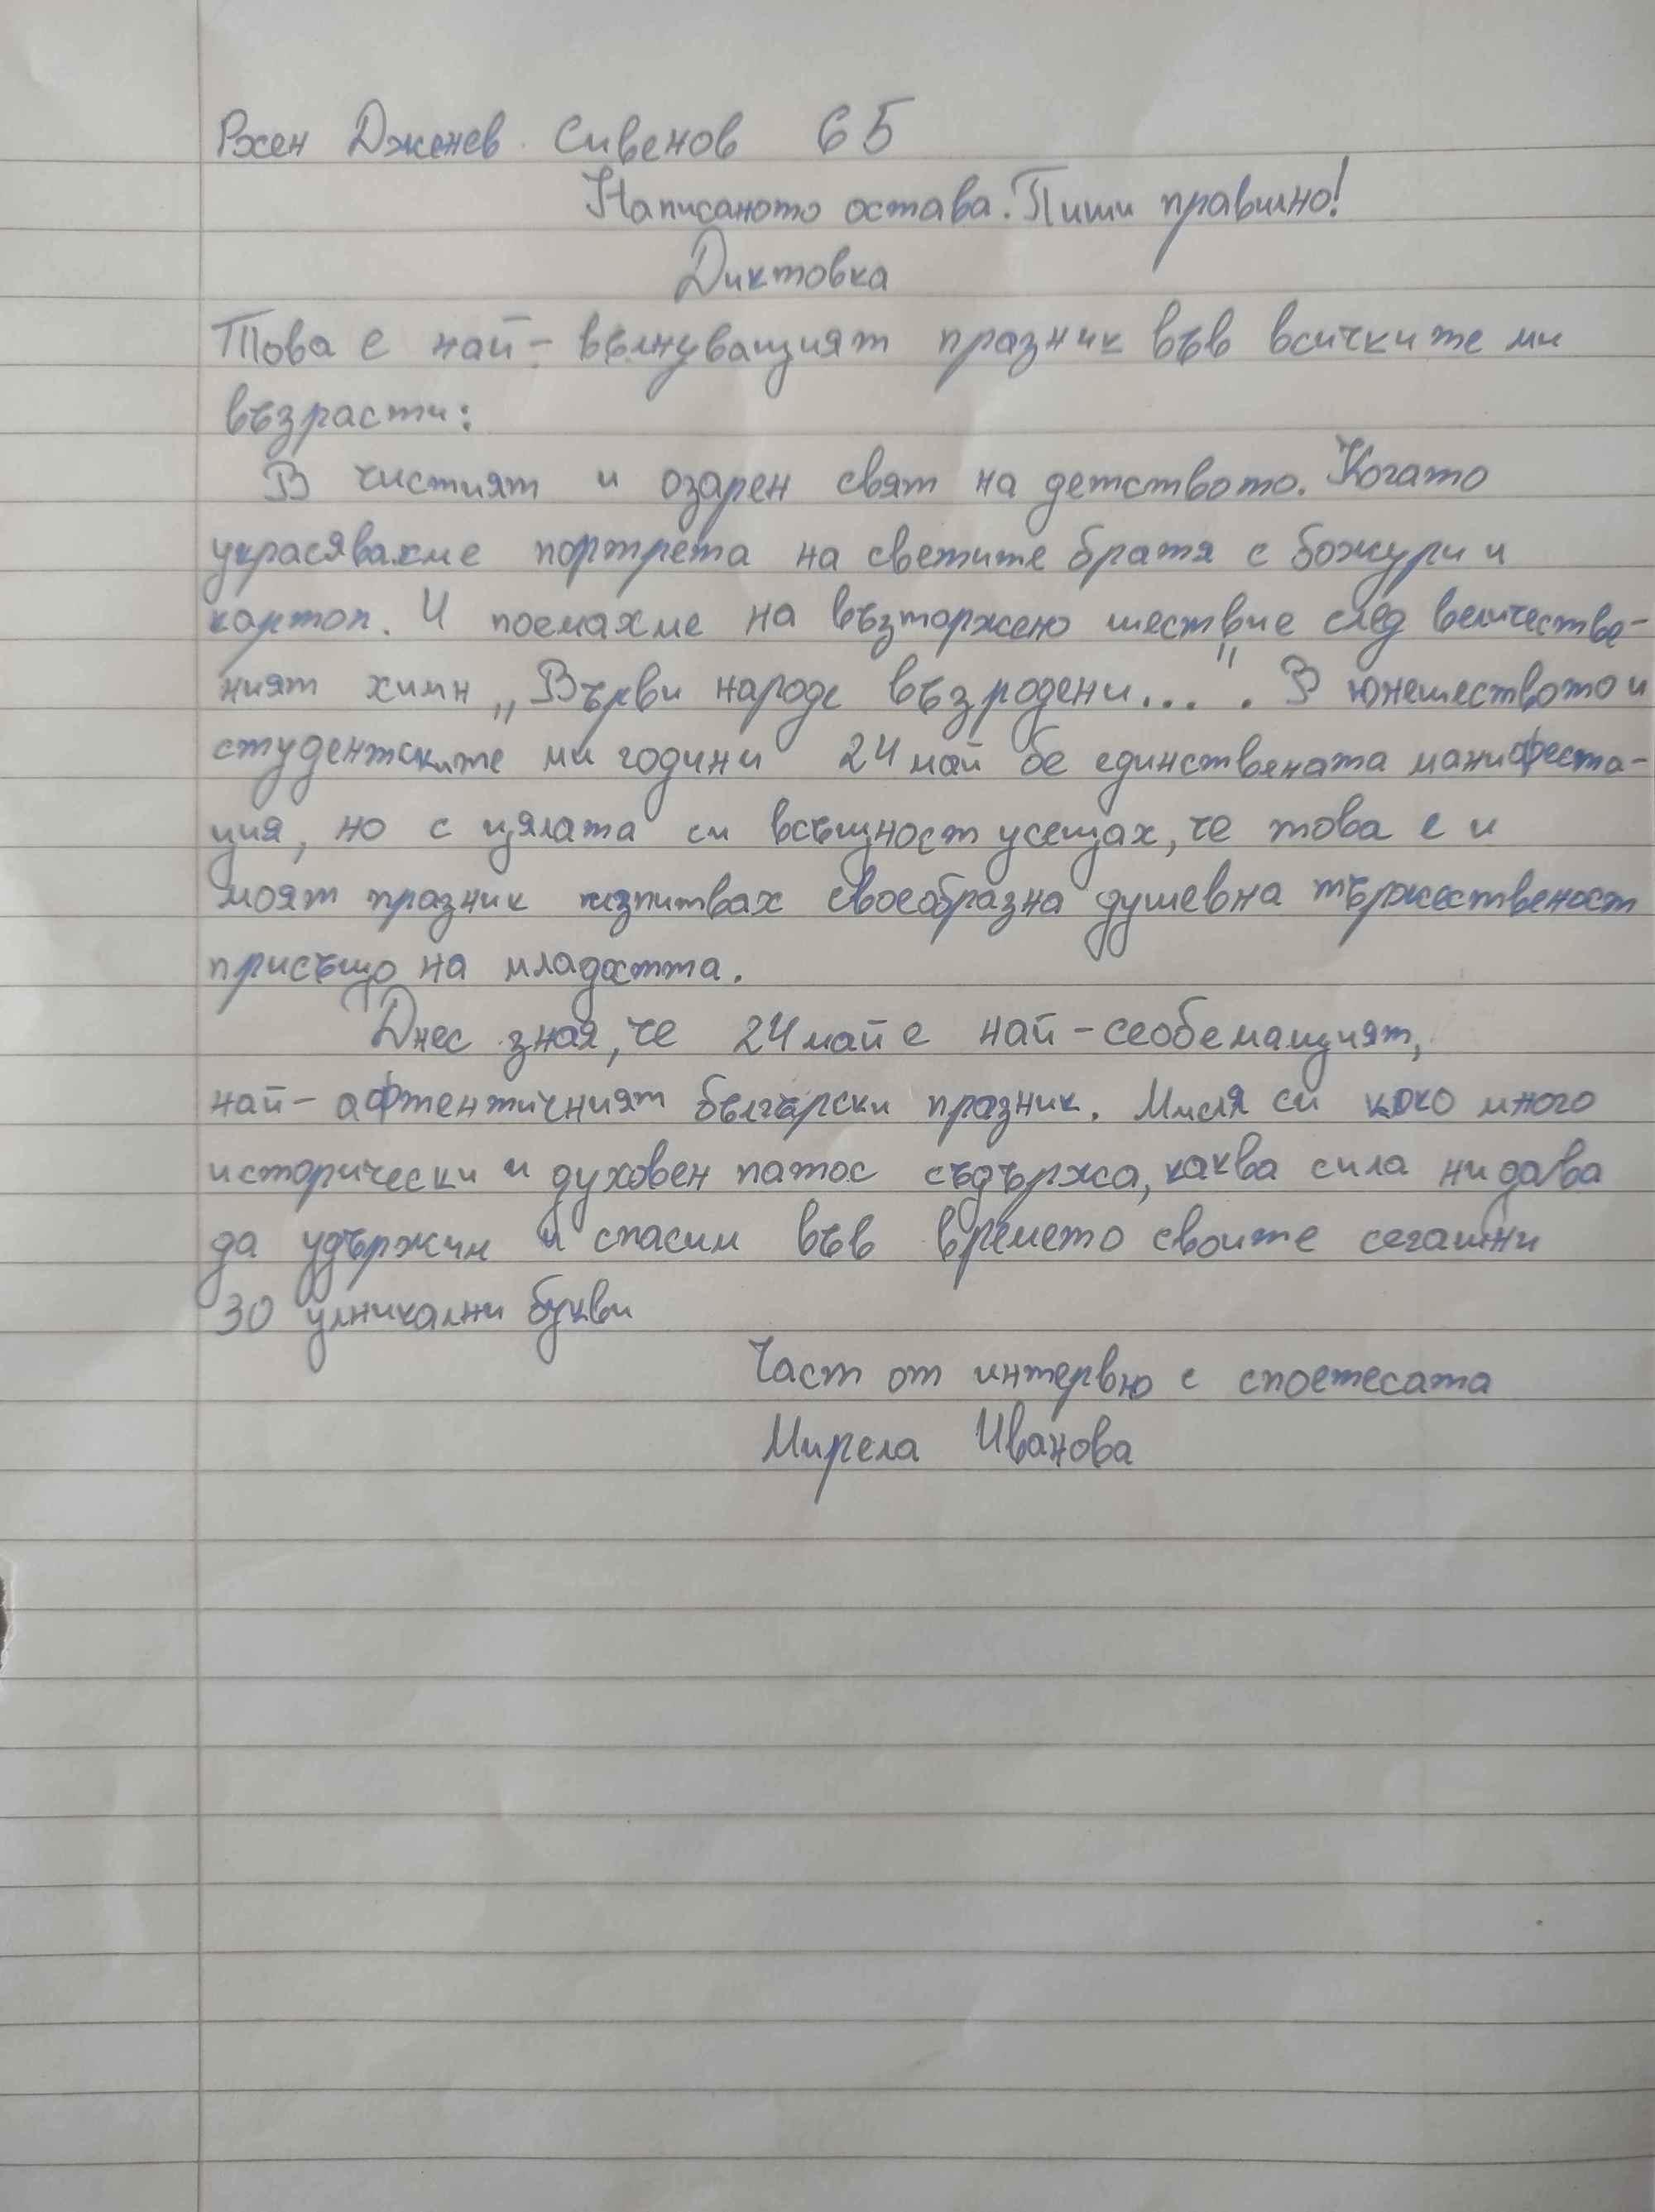 Рхен Дженев Сивенов 6Б
Написаното остава. Пиши правилно!
Диктовка
Това е най-вълнуващият празник във всичките ми
възрасти:
В чистият и озарен свят на детството. Когато
украсявахме портрета на светите братя с божури и
картоп. И поемахме на възторжено шествие след величестве-
ният химн „Върви народе възродени...". В юнешеството и
студентските ми години 24 май бе единствената манифеста-
ция, но с цялата си всъщност усещах, че това е и
моят празник изпитвах своеобразна душевна тържественост
присъщо на младостта.
Днес зная, че 24 май е най-сеобемащият,
най-афтентичният български празник. Мисля си коко много
исторически и духовен патос съдържа, каква сила ни дава
да удържим и спасим във времето своите сегашни
30 уникални букви
Част от интервю с споетесата
Мирела Иванова